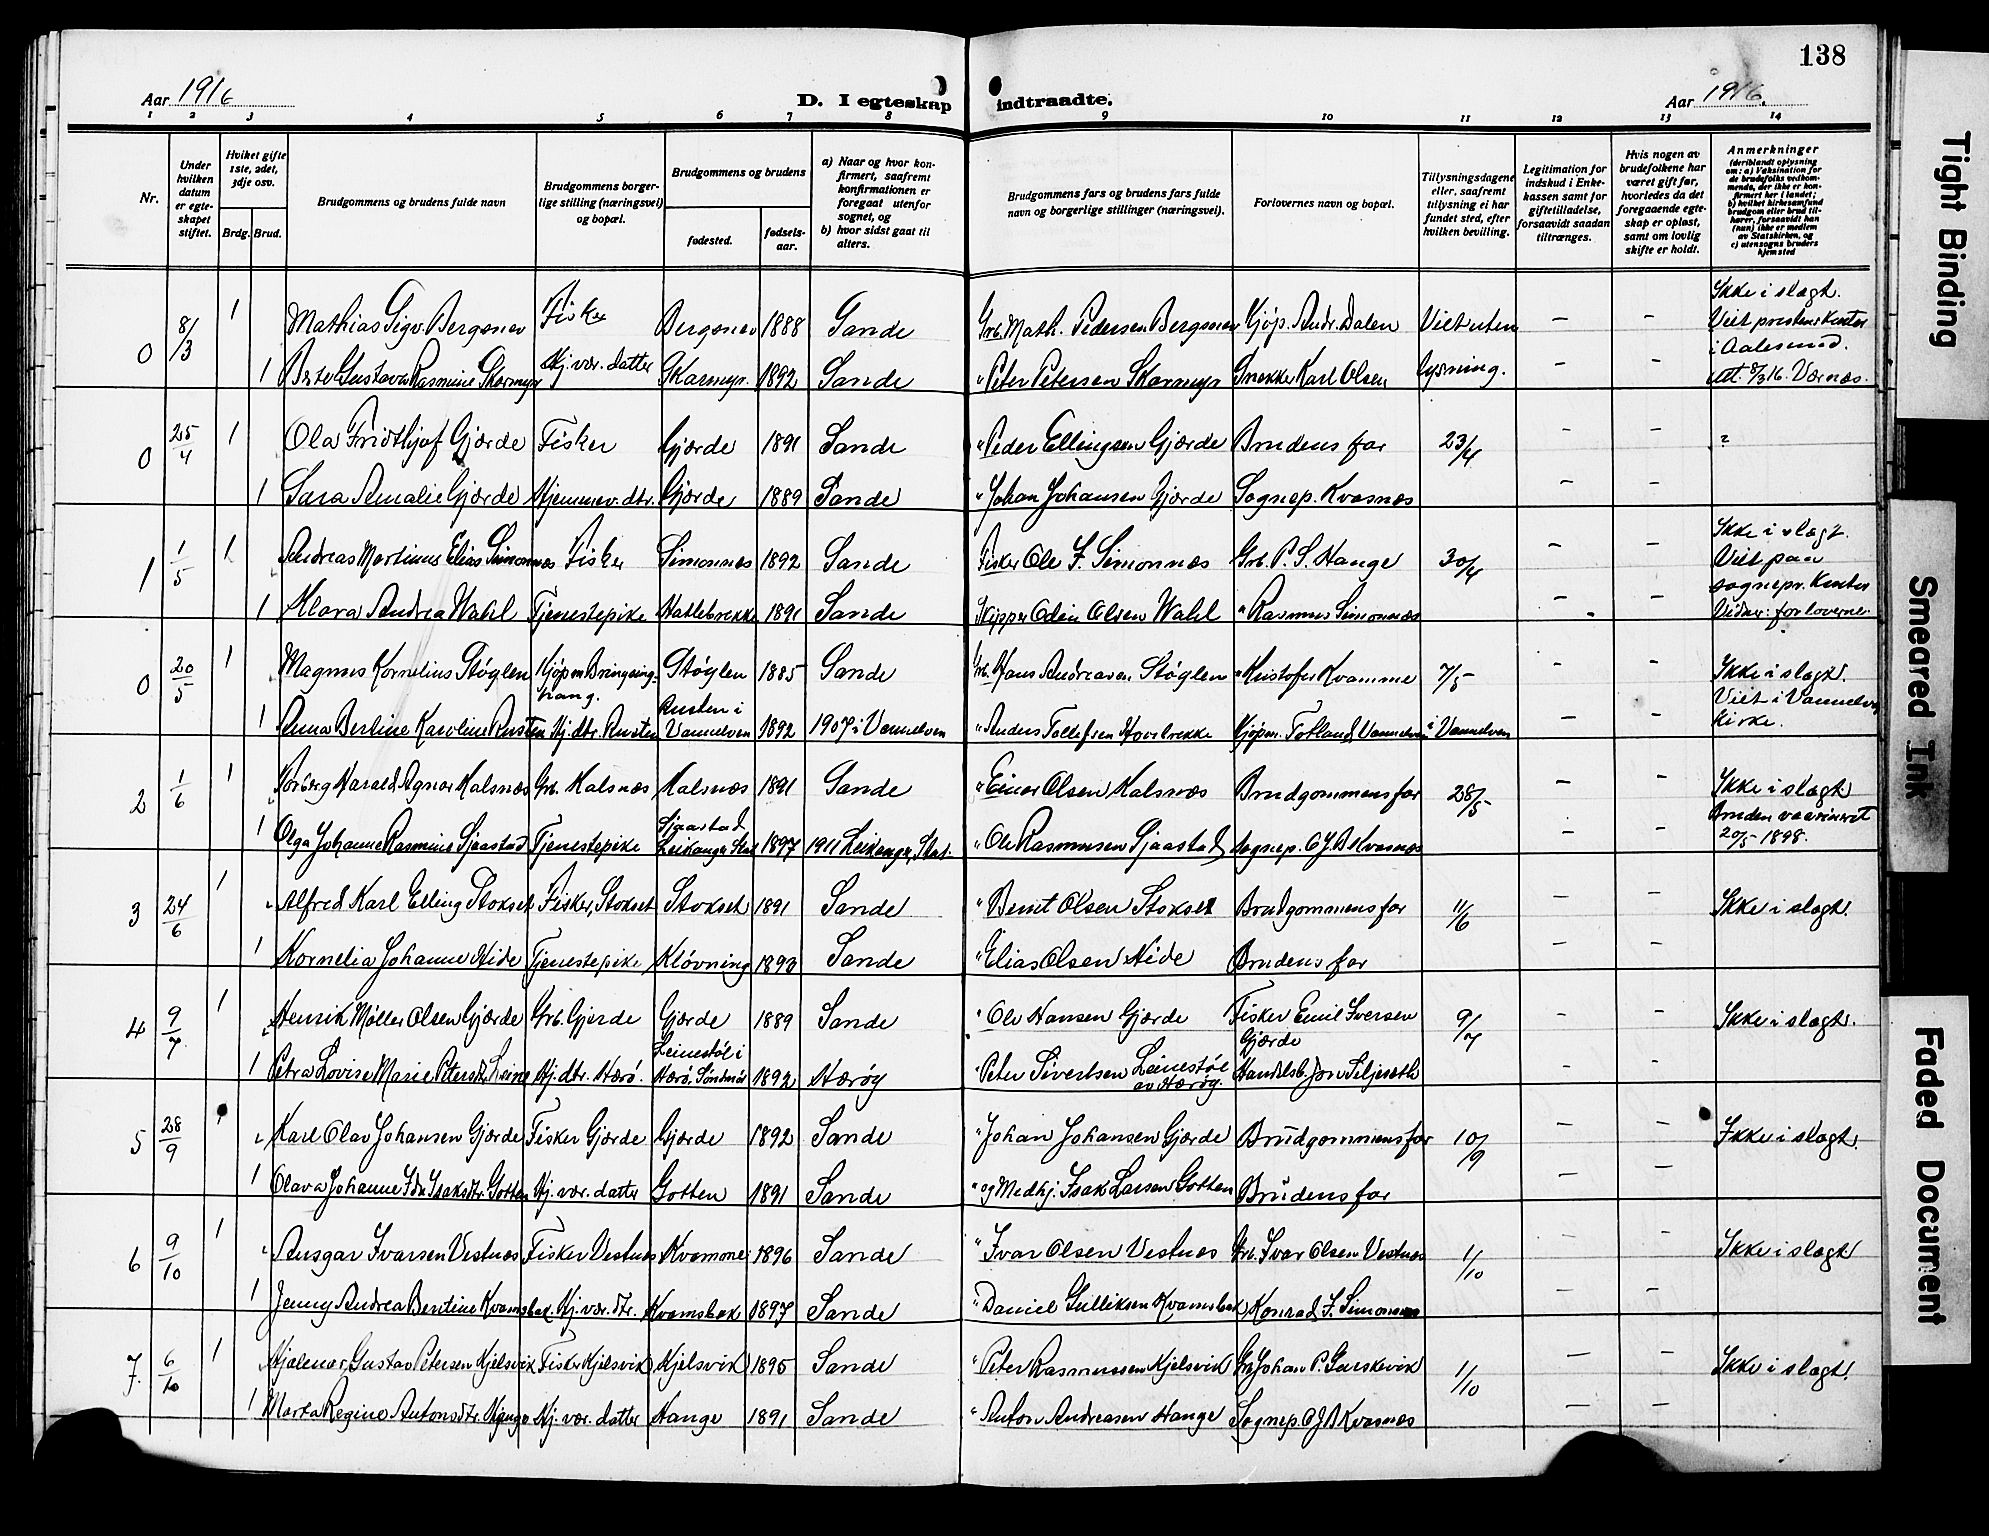 138
Aar 1916
D. I egteskap indtraadte.
Aar 1916.
1 2 3 4 5 6 7 8 9 10 11 12 13 14
Nr.
Under hvilken datum er egteskapet stiftet.
Hvilket gifte 1ste, 2det, 3dje osv.
Brdg. Brud.
Brudgommens og brudens fulde navn
Brudgommens borgerlige stilling (næringsvei) og bopæl.
Brudgommens og brudens
fødested.
fødselsaar.
a) Naar og hvor konfirmert, saafremt konfirmationen er foregaat utenfor sognet, og
b) hvor sidst gaat til alters.
Brudgommens fars og brudens fars fulde navn og borgerlige stillinger (næringsvei).
Forlovernes navn og bopæl.
Tillysningsdagene eller, saafremt tillysning ei har fundet sted, efter hvilken bevilling.
Legitimation for indskud i Enkekassen samt for giftetilladelse, forsaavidt saadan tiltrænges.
Hvis nogen av brudefolkene har været gift før, hvorledes da det foregaaende egteskap er opløst, samt om lovlig skifte er holdt.
Anmerkninger (deriblandt oplysning om: a) Vaksination for de brudefolks vedkommende, der ikke er konfirmert her i landet; b) hvilket kirkesamfund brudgom eller brud tilhører, forsaavidt han (hun) ikke er medlem av Statskirken, og c) utensogns bruders hjemsted
0 8/3 1 Mathias Sigv. Bergsnev Fisker Bergsnev 1888 Sande Grb. Math. Pedersen Bergsnev Kjøp. Andr. Dalen Viet uten – – Ikke i slægt. Viet prestens kontor
1 Gustava Rasmine Skarmyr Hj. vær. datter Skarmyr. 1892 Sande " Peter Petersen Skarmyr Snekker Karl Olsen lysning. – – i Aalesund. att. 8/3 16. Værnæs.
0 25/4 1 Ola Fridthjof Gjærde Fisker Gjærde 1891 Sande " Peder Ellingsen Gjærde Brudens far 23/4 – –
1 Sara Amalie Gjærde Hjemmev. dtr. Gjærde 1889 Sande " Johan Johansen Gjærde Sognep. Kvasnæs – –
1 1/5 1 Andreas Martinus Elias Simonnæs Fisker Simonnæs 1892 Sande Fisker Ole J. Simonnæs Grb. P. S. Hauge 30/4 – – Ikke i slægt. Viet paa sognepr. kontor
1 Klara Andrea Wahl Tjenestepike Hatlebrekke 1891 Sande Skipper Odin Olsen Wahl " Rasmus Simonnæs – – Vidner: forloverne.
0 20/5 1 Magnus Kornelius Støylen Kjøpm Bringsinghaug. Støylen 1885 Sande Grb. Hans Andreasen Støylen " Kristofer Kvamme 7/5 – – Ikke i slægt. Viet i Vannelven
1 Anna Bertine Karoline Rusten Hj. dtr. Rusten Rusten i Vannelven 1892 1907 i Vannelven " Anders Tollefsen Kjøpm. Totland, Vannelven i Vannelven – – kirke.
2 1/6 1 Harald Agnar Kalsnæs Grb. Kalsnæs Kalsnæs 1891 Sande " Einar Olsen Kalsnæs Brudgommens far 28/5 – – Ikke i slægt.
1 Olga Johanne Rasmine Sjaastad Tjenestepike Sjaastad Leikanger Stat 1897 1911 Leikanger, Stat. " Ole Rasmussen Sjaastad Sognep. O J B Kvasnæs – – Bruden vaccineret 20/5 1898.
3 24/6 1 Alfred Karl Elling Stokset Fisker, Stokset Stokset 1891 Sande " Bernt Olsen Stokset Brudgommens far 11/6 – – Ikke i slægt.
1 Kornelia Johanne Hide Tjenestepike Kløvning 1893 Sande " Elias Olsen Hide Brudens far – –
4 9/7 1 Henrik Møller Olsen Gjærde Grb. Gjærde Gjærde 1889 Sande " Ole Hansen Gjærde Fisker Emil Iversen Gjærde 9/7 – – Ikke i slægt.
1 Petra Lovise Marie Petersdtr. Leine Hj. dtr. Herö. Leinestøl i Herö, Söndmör 1892 Herøy " Peter Sivertsen Leinestøl av Herøy. Handelsb. Jon Seljeseth – –
5 28/9 1 Karl Olav Johansen Gjærde Fisker Gjærde Gjærde 1892 Sande " Johan Johansen Gjærde Brudgommens far 10/9 – – Ikke i slægt.
1 Olava Johanne Ida Isaksdtr. Gotten Hj. vær. datter Gotten 1891 Sande " og Medhj. Isak Larsen Gotten Brudens far – –
6 9/10 1 Ansgar Ivarsen Vestnæs Fisker Vestnæs Kvamme 1896 Sande " Ivar Olsen Vestnæs Grb. Ivar Olsen Vestnæs 1/10 – – Ikke i slægt
1 Jenny Andrea Bertine Kvamsbak Hj. vær. dtr. Kvamsbak 1897 Sande " Daniel Gulliksen Kvamsbak Konrad J. Simonnæs – –
7. 6/10 1 Hjalmar Gustav Petersen Kjelsvik Fisker Kjelsvik Kjelsvik 1895 Sande " Peter Rasmussen Kjelsvik Grb Johan P. Gurskevik 1/10 – – Ikke i slægt.
1 Marta Regine Antonsdtr. Hauge Hj. vær. datter Hauge 1891 Sande " Anton Andreasen Hauge Sognep. O J B Kvasnæs – –
Tight Binding
Smeared Ink
Faded Document